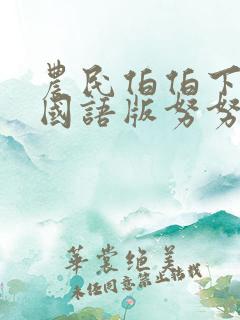 農民伯伯下
國語版努努
華裳绝美
未经同意禁止转载